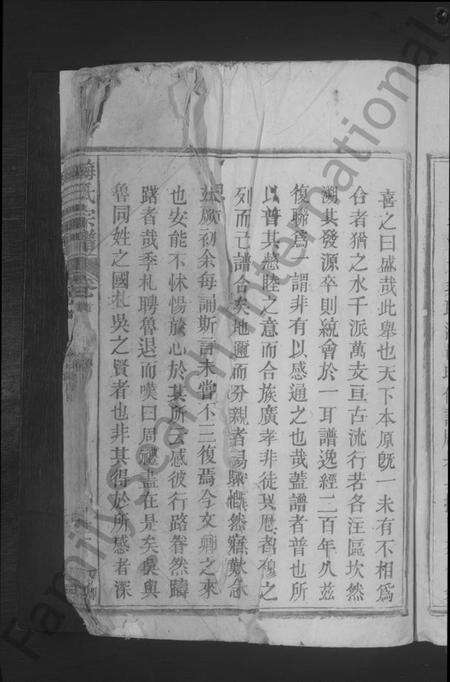 喜之曰盛哉此舉也天下本原既一未有不相爲
合者猶之水千派萬支亘古流行若各注區坎然
溯其發源卒則統會於一耳譜逸經二百年久玆
復聯爲一謂非有以感通之也哉蓋譜者普也所
以普其慈睦之意而合族廣孝非徒異厯者穆之
列而已譜合矣地邇而分親者
初余每誦斯言未嘗不三復焉今文卿之來
也安能不怵惕於心於其所云感彼行路眷然躊
躇者哉季札聘魯退而嘆曰周禮盡在是矣吳與
魯同姓之國札吳之賢者也非其得於所感者深
氏宗譜
FamilySearch International